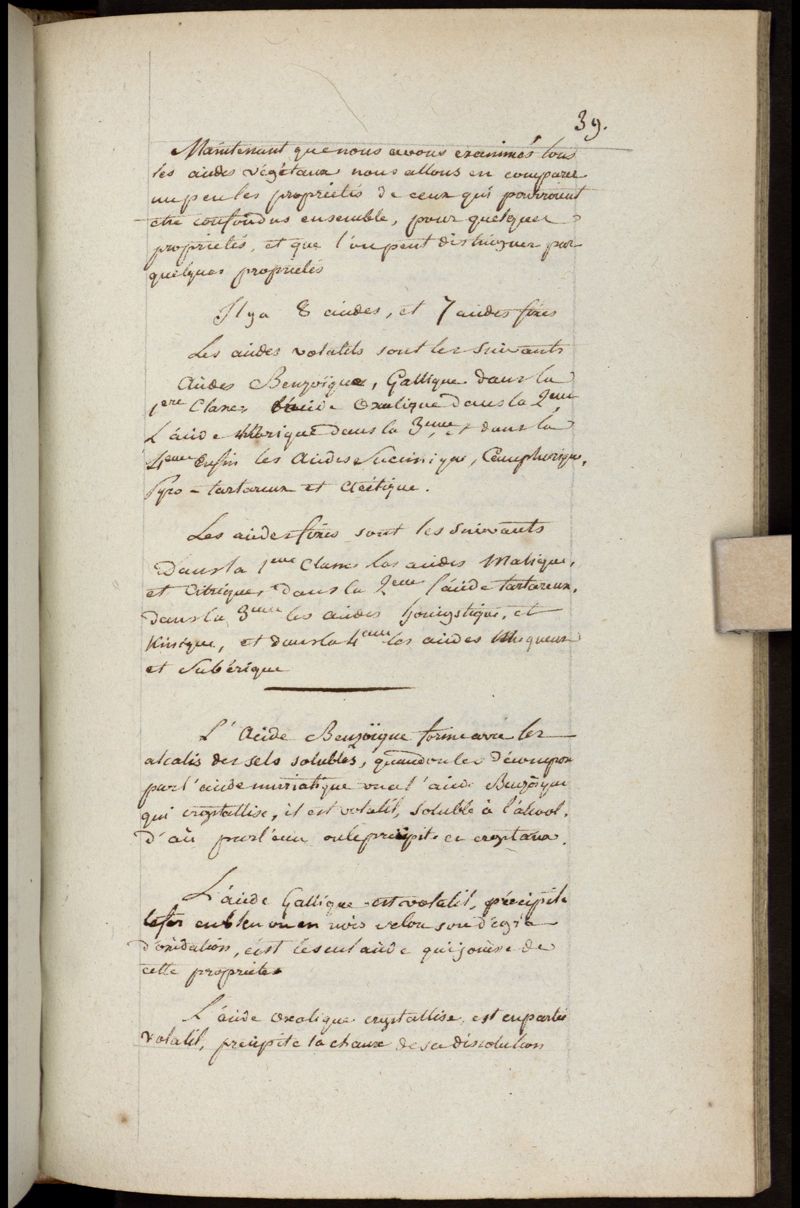 39.
Maintenant que nous avons examinés tous
les acides végétaux nous allons en comparer
un peu les propriétés de ceux qui pourroient
etre confondus ensemble, pour quelques
propriétés, et que l'on peut distinguer par
quelques propriétés
Il y a 8 acides, et 7 acides fixes
Les acides volatils sont les suivants
Acides Benzoïque, Gallique dans la
1ere Classe, acide Oxalique dans la 2eme
L'acide dans la 3eme, et dans la
4eme enfin les Acides Succinique, Camphorique,
Pyro-tartareux et Acétique.
Les acides fixes sont les suivants
Dans la 1ere Classe les acides Malique,
et Citrique, dans la 2eme l'acide tartareux,
dans la 3eme les acides honigstique, et
Kinique, et dans la 4eme les acides Muqueux
et Subérique
L'Acide Benzoïque forme avec les
alcalis des sels solubles, quand on les décompose
par l'acide muriatique on a l'acide Benzoïque
qui crystallise, il est volatil, soluble à l'alcool,
d'où par l'eau on le précipite en crystaux.
L'acide Gallique est volatil, précipite
le fer en bleu ou en noir selon son dégré
d'oxidation, c'est le seul acide qui jouisse de
cette propriété
L'acide Oxalique crystallise, est en partie
volatil, précipite la chaux de sa dissolution